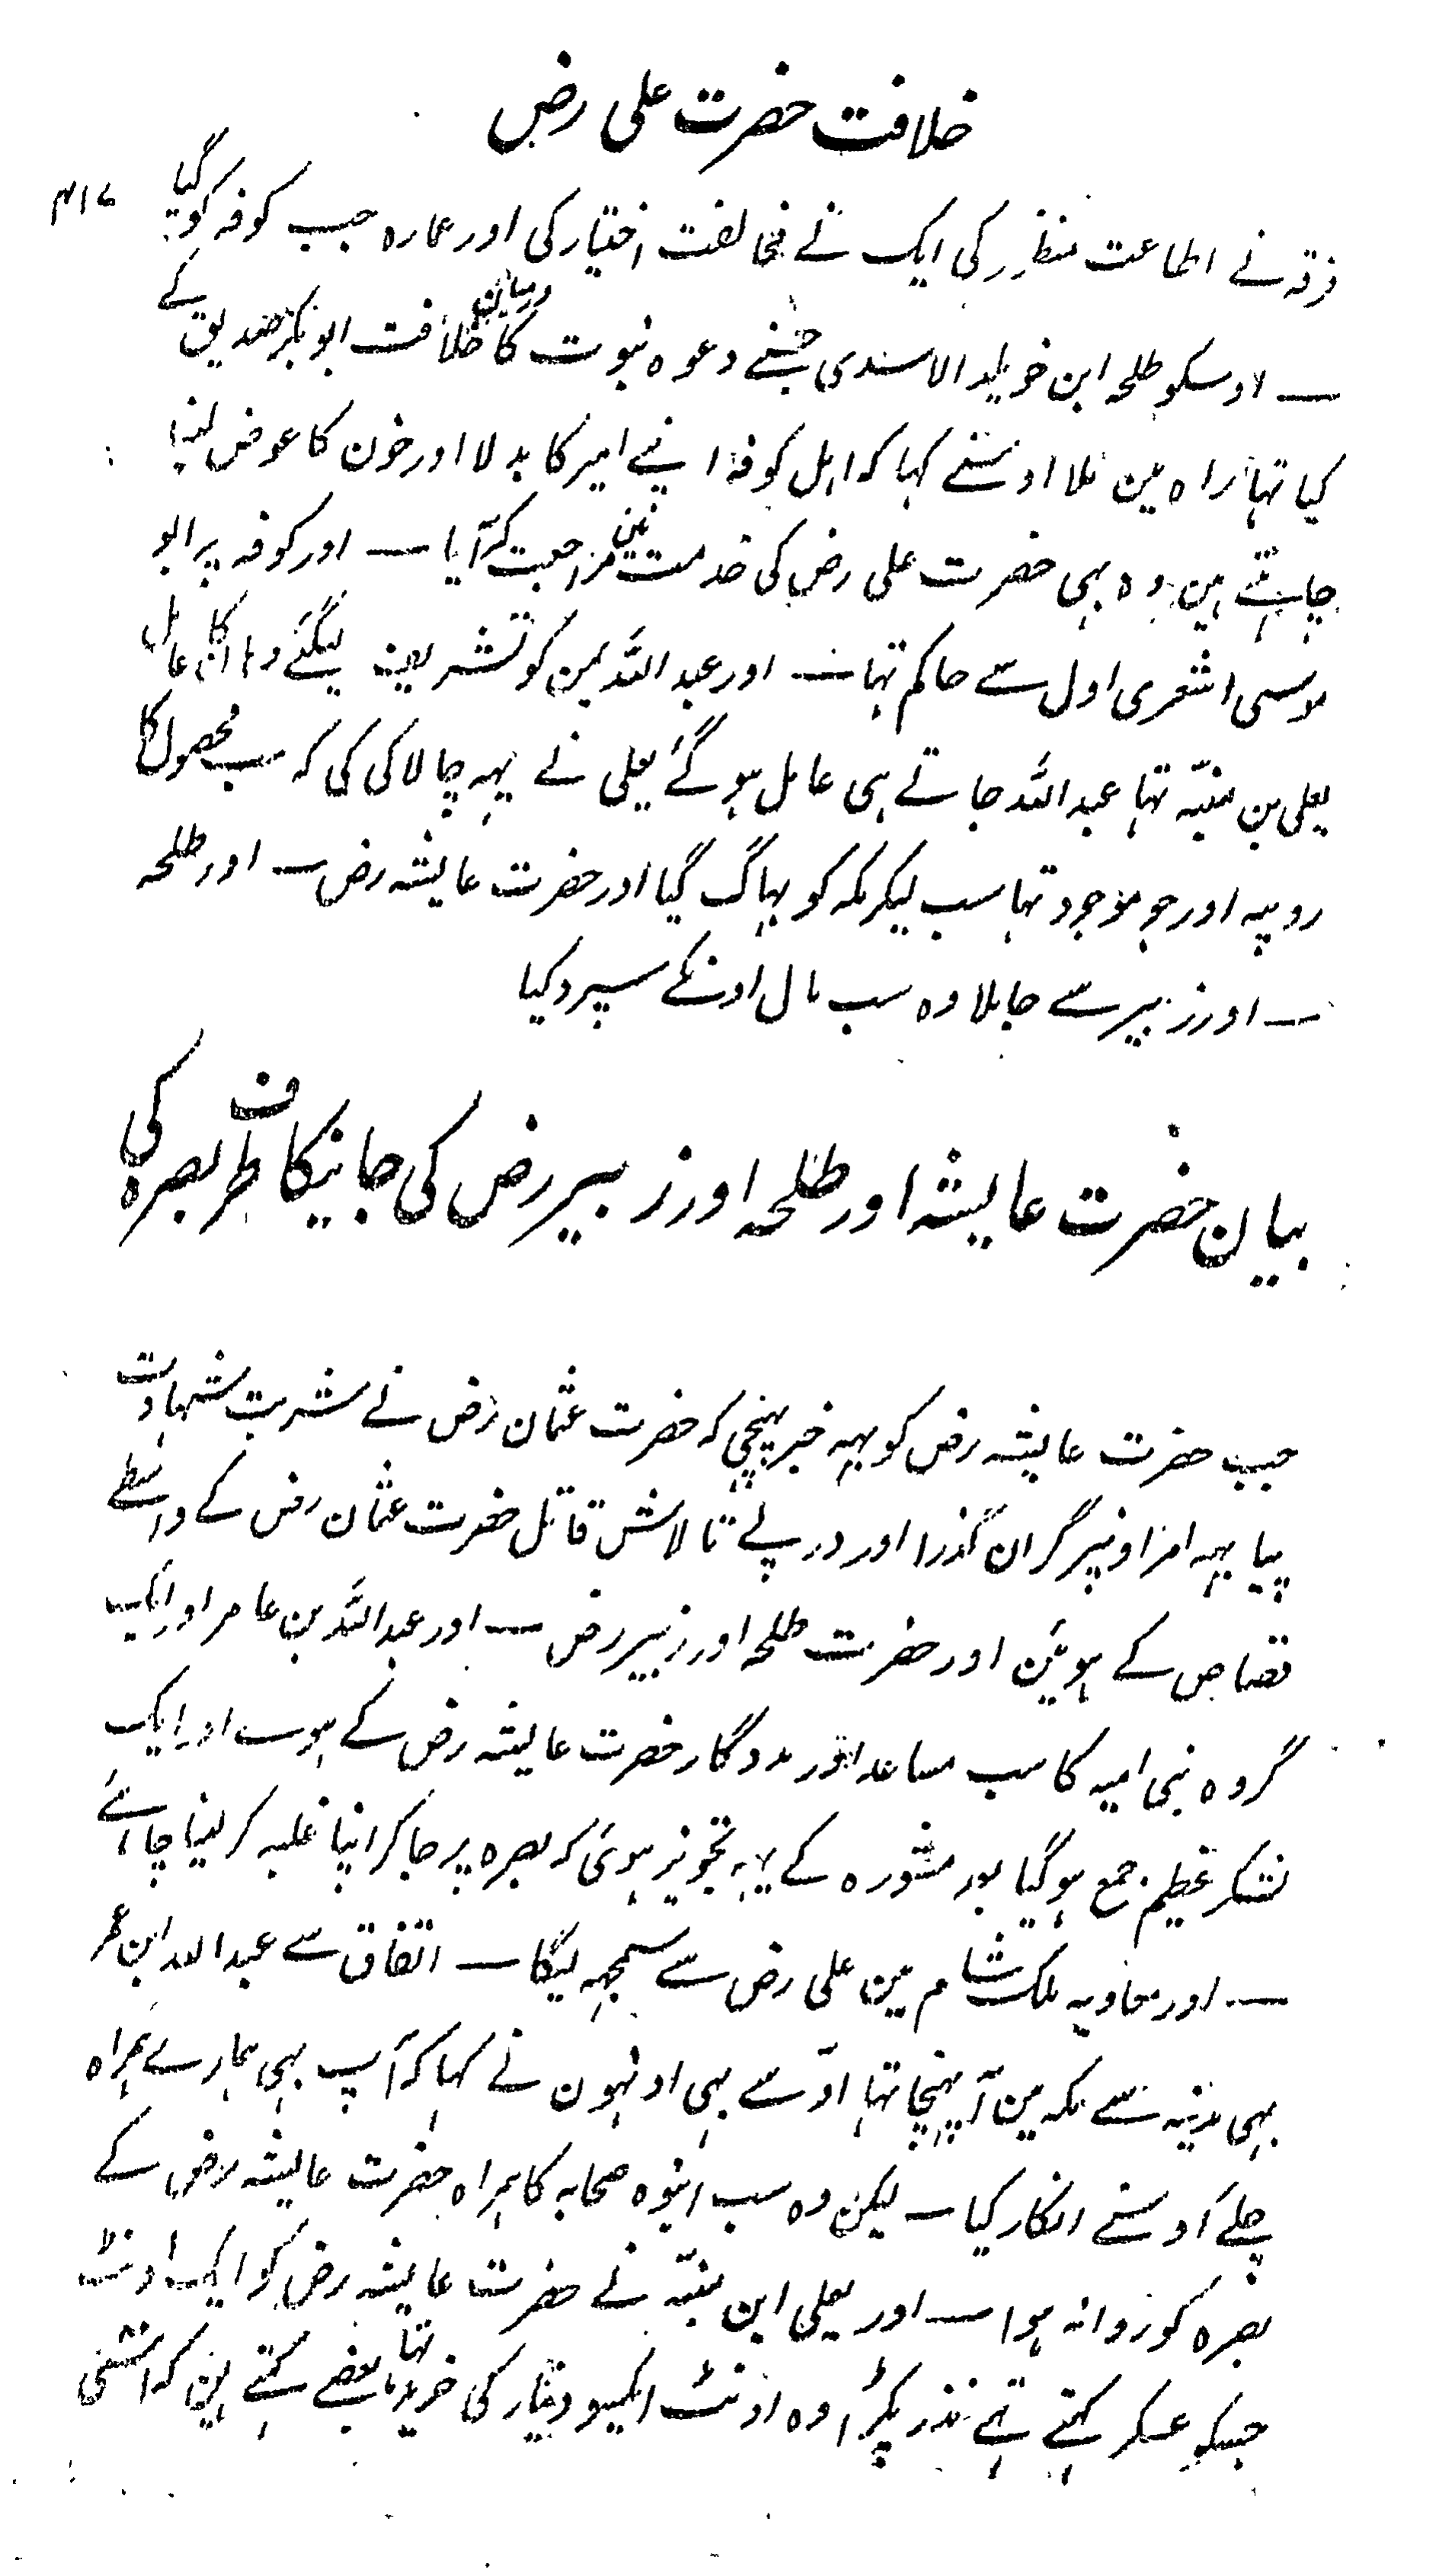 خلافت حضرت علی رض
۴۱۷
فرقہ نے اطاعت منظور کی ایک نے مخالفت اختیار کی اور عمارہ جب کوفہ کو گیا
— اوسکو طلحہ ابن خویلد الاسدی جسنے دعوہ نبوت کا درمیان خلافت ابوبکر صدیق کے
کیا تہا راہ مین ملا اوسنے کہا کہ اہل کوفہ اپنے امیر کا بدلا اور خون کا عوض لینا
چاہتے ہین وہ بہی حضرت علی رض کی خدمت مین مراجعت کر آیا — اور کوفہ پر ابو
موسی اشعری اول سے حاکم تہا — اور عبداللہ یمن کو تشریف لیگئے وہان کا عامل
یعلی بن منبّہ تہا عبداللہ جاتے ہی عامل ہو گئے یعلی نے یہہ چالاکی کی کہ سب محصول کا
روپیہ اور جو موجود تہا سب لیکر مکہ کو بہاگ گیا اور حضرت عایشہ رض — اور طلحہ
— اور زبیر سے جا ملا وہ سب مال اونکے سپرد کیا
بیان حضرت عایشہ اور طلحہ اور زبیر رض کی جانیکا طرف بصرہ کی
جب حضرت عایشہ رض کو یہہ خبر پہنچی کہ حضرت عثمان رض نے شربت شہادت
پیا یہہ امر اونپر گران گذرا اور درپے تالاش قاتل حضرت عثمان رض کے واسطے
قصاص کے ہوئین اور حضرت طلحہ اور زبیر رض — اور عبداللہ بن عامر اور ایک
گروہ بنی امیہ کا سب مساعد اور مددگار حضرت عایشہ رض کے ہوے اور ایک
لشکر عظیم جمع ہو گیا بعد مشورہ کے یہہ تجویز ہوئی کہ بصرہ پر جا کر اپنا غلبہ کر لینا چاہئے
— اور معاویہ ملک شام مین علی رض سے سمجہہ لیگا — اتفاق سے عبداللہ ابن عمر
بہی مدینہ سے مکہ مین آ پہنچا تہا اوسے بہی اونہون نے کہا کہ آپ بہی ہمارے ہمراہ
چلے اوسنے انکار کیا — لیکن وہ سب انبوہ صحابہ کا ہمراہ حضرت عایشہ رض کے
بصرہ کو روانہ ہوا — اور یعلی ابن منبّہ نے حضرت عایشہ رض کو ایک اونٹ
جسکو عسکر کہتے تہے نذر پکڑا وہ اونٹ ایکسو دینار کی خرید تہا بعضے کہتے ہین کہ